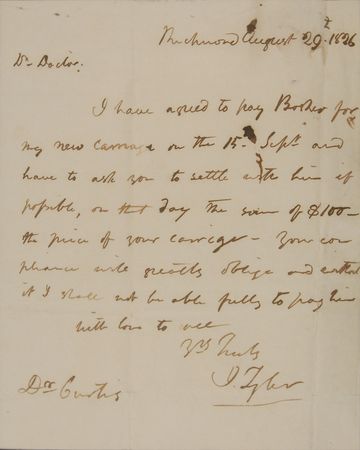 Richmond August 29th 1826
Dr Doctor.
I have agreed to pay Bosher for
my new carriage on the 15. Sept. and
have to ask you to settle with him if
possible, on that day the sum of $100—
the price of your carriage— Your com
pliance will greatly oblige and without
it I shall not be able fully to pay him
with love to all
Yrs Truly
J. Tyler
Dr Curtis